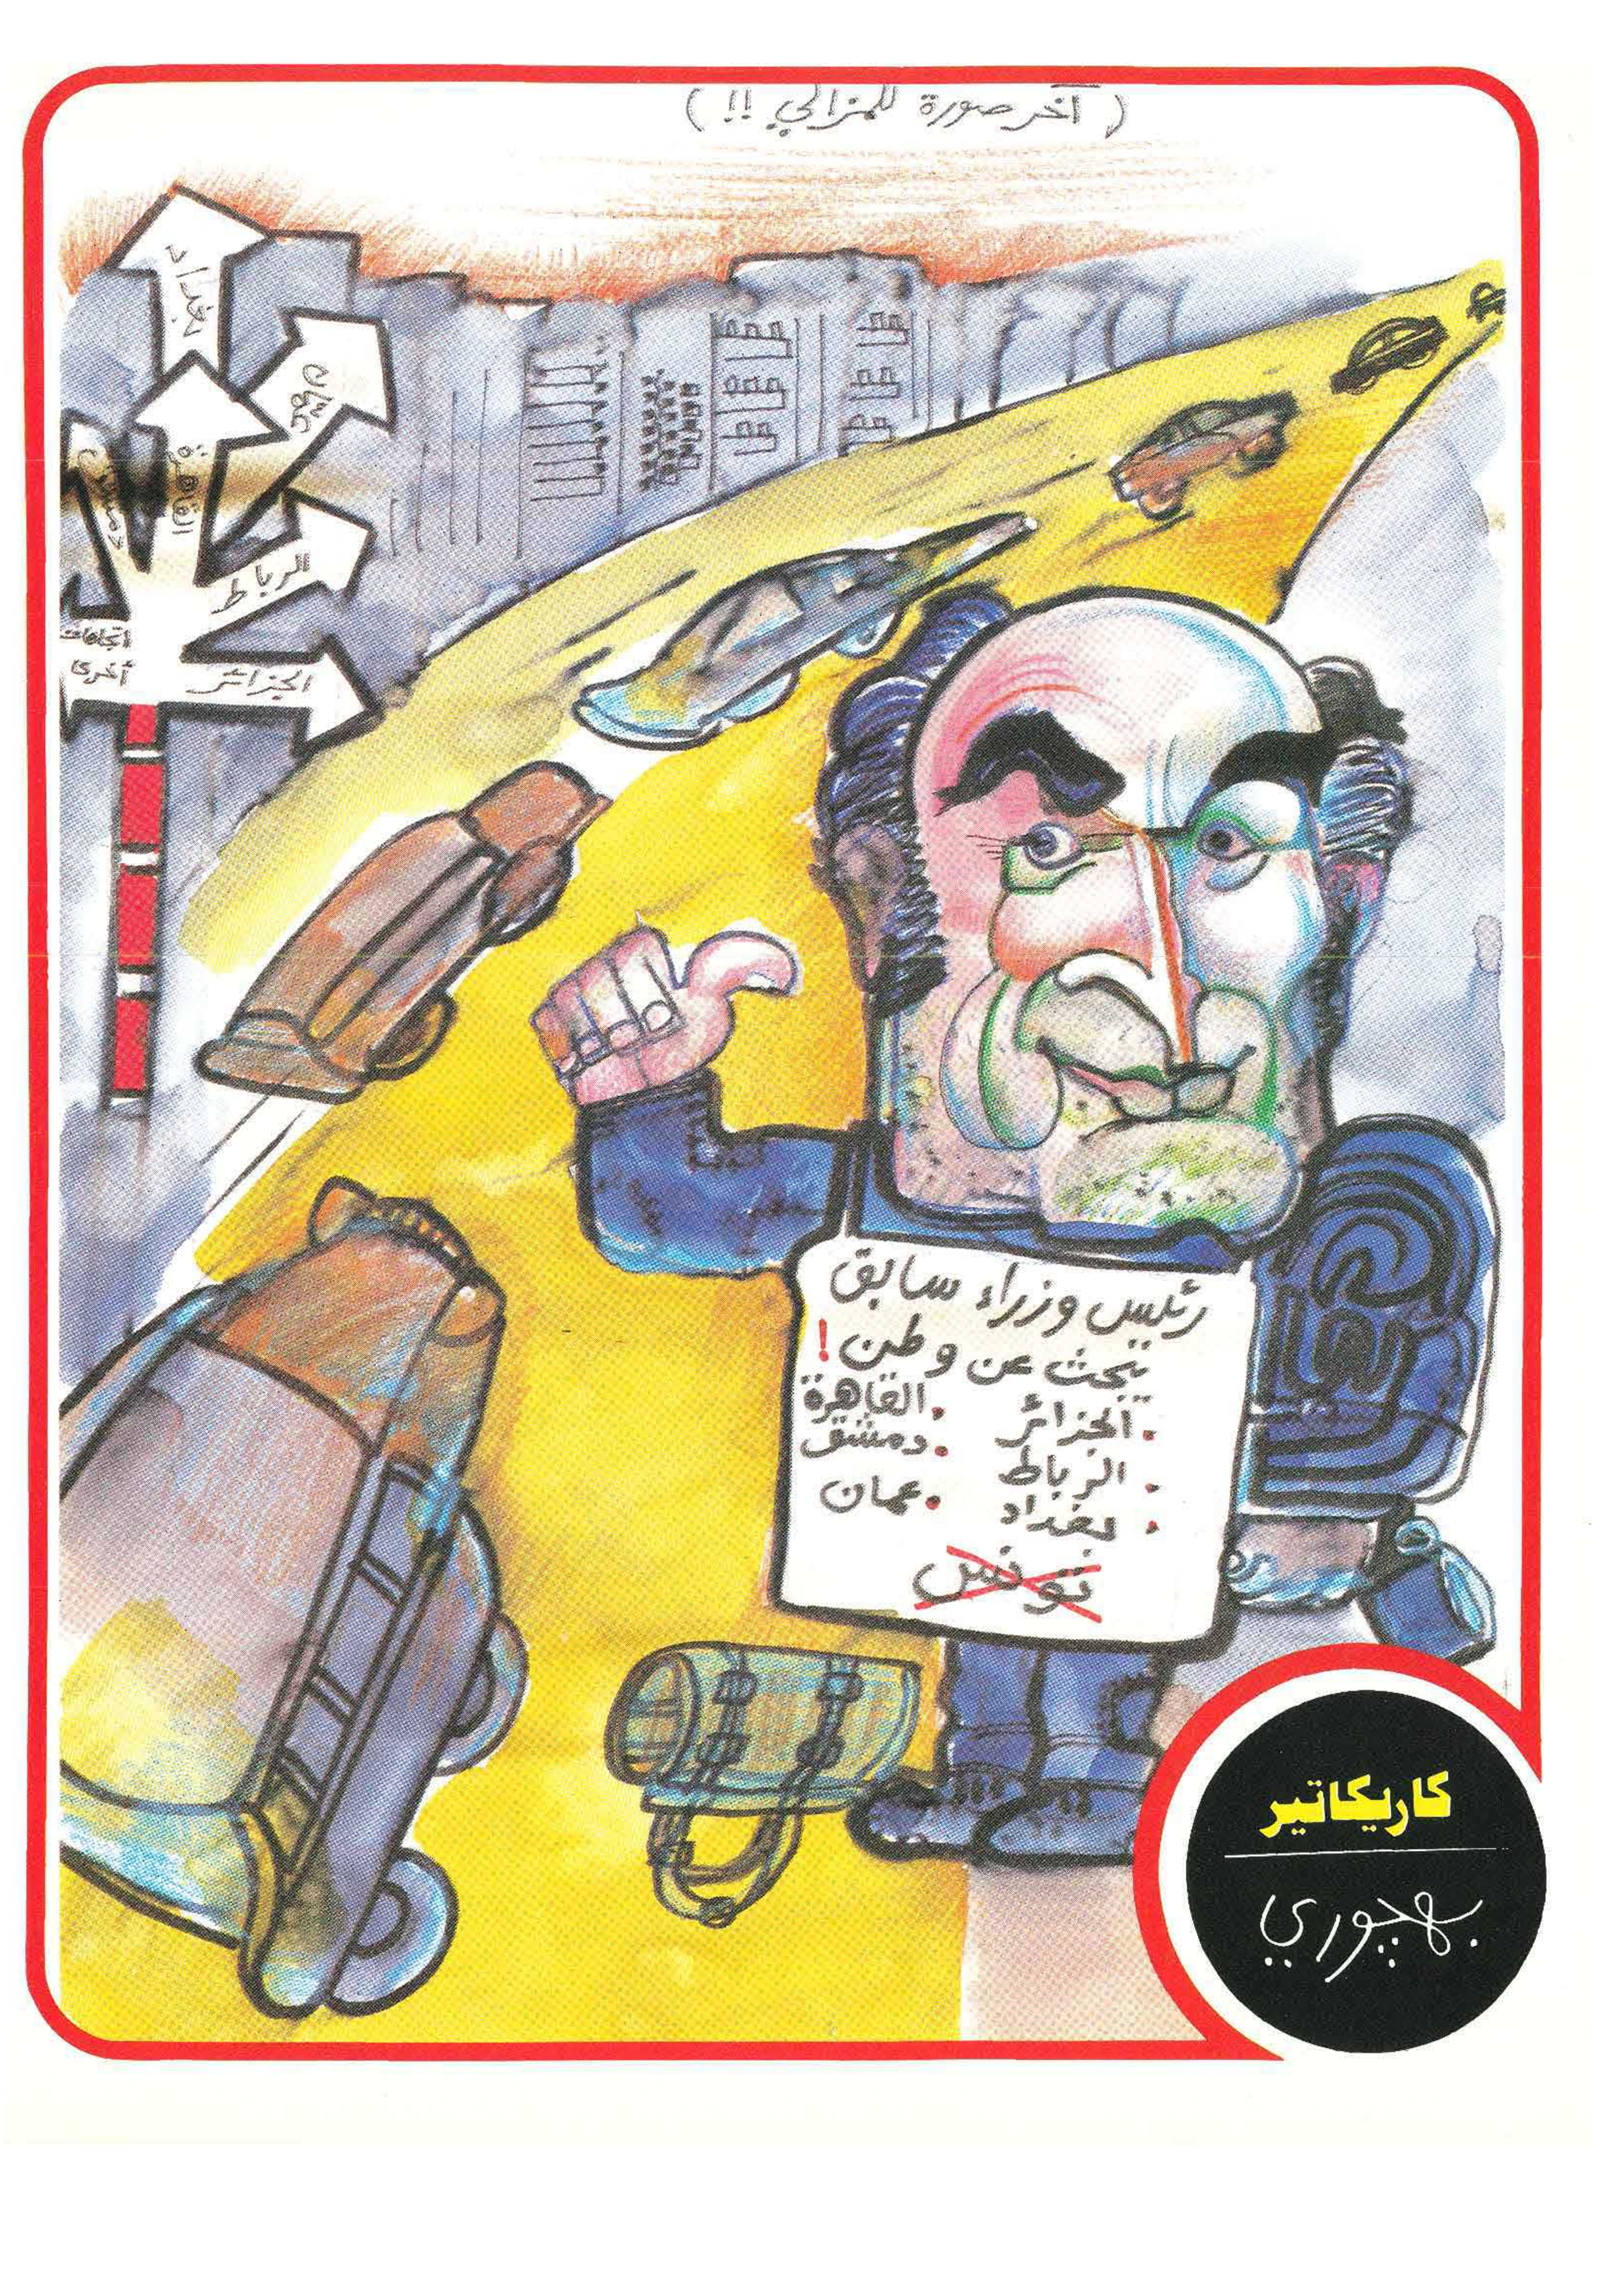 ( آخر صورة للمزالي !! )
بغداد
عمان
القاهرة
دمشق
الرباط
اتجاهات
أخرى
الجزائر
رئيس وزراء سابق
يبحث عن وطن !
. الجزائر . القاهرة
. الرباط . دمشق
. بغداد . عمان
تونس
كاريكاتير
بهجوري